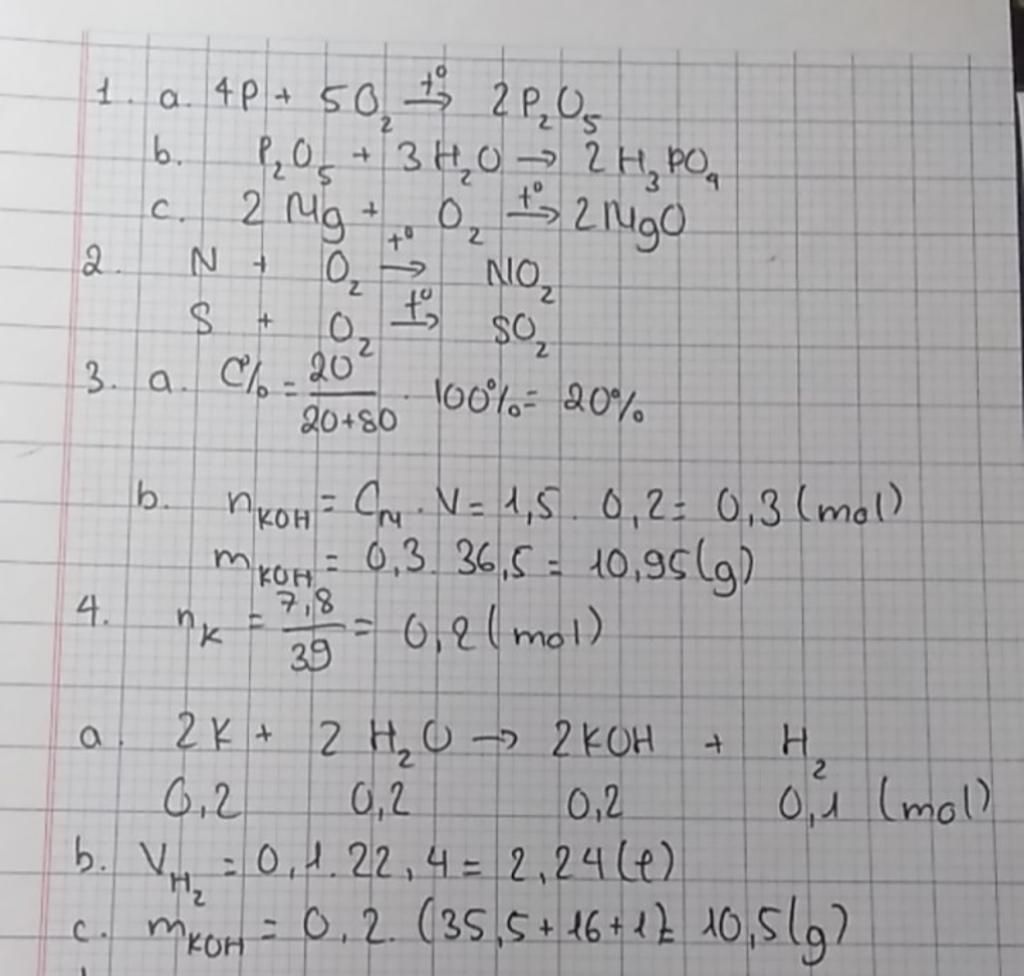 1. a. 4P + 5O₂ →t° 2P₂O₅
b. P₂O₅ + 3H₂O → 2H₃PO₄
c. 2Mg + O₂ →t° 2MgO
2. N + O₂ →t° NO₂
S + O₂ →t° SO₂
3. a. C% = 20/(20+80) . 100% = 20%
b. n_KOH = C_M . V = 1,5 . 0,2 = 0,3 (mol)
m_KOH = 0,3 . 36,5 = 10,95 (g)
4. n_K = 7,8/39 = 0,2 (mol)
a. 2K + 2H₂O → 2KOH + H₂
0,2 0,2 0,2 0,1 (mol)
b. V_H₂ = 0,1 . 22,4 = 2,24 (l)
c. m_KOH = 0,2 . (35,5+16+1) = 10,5 (g)